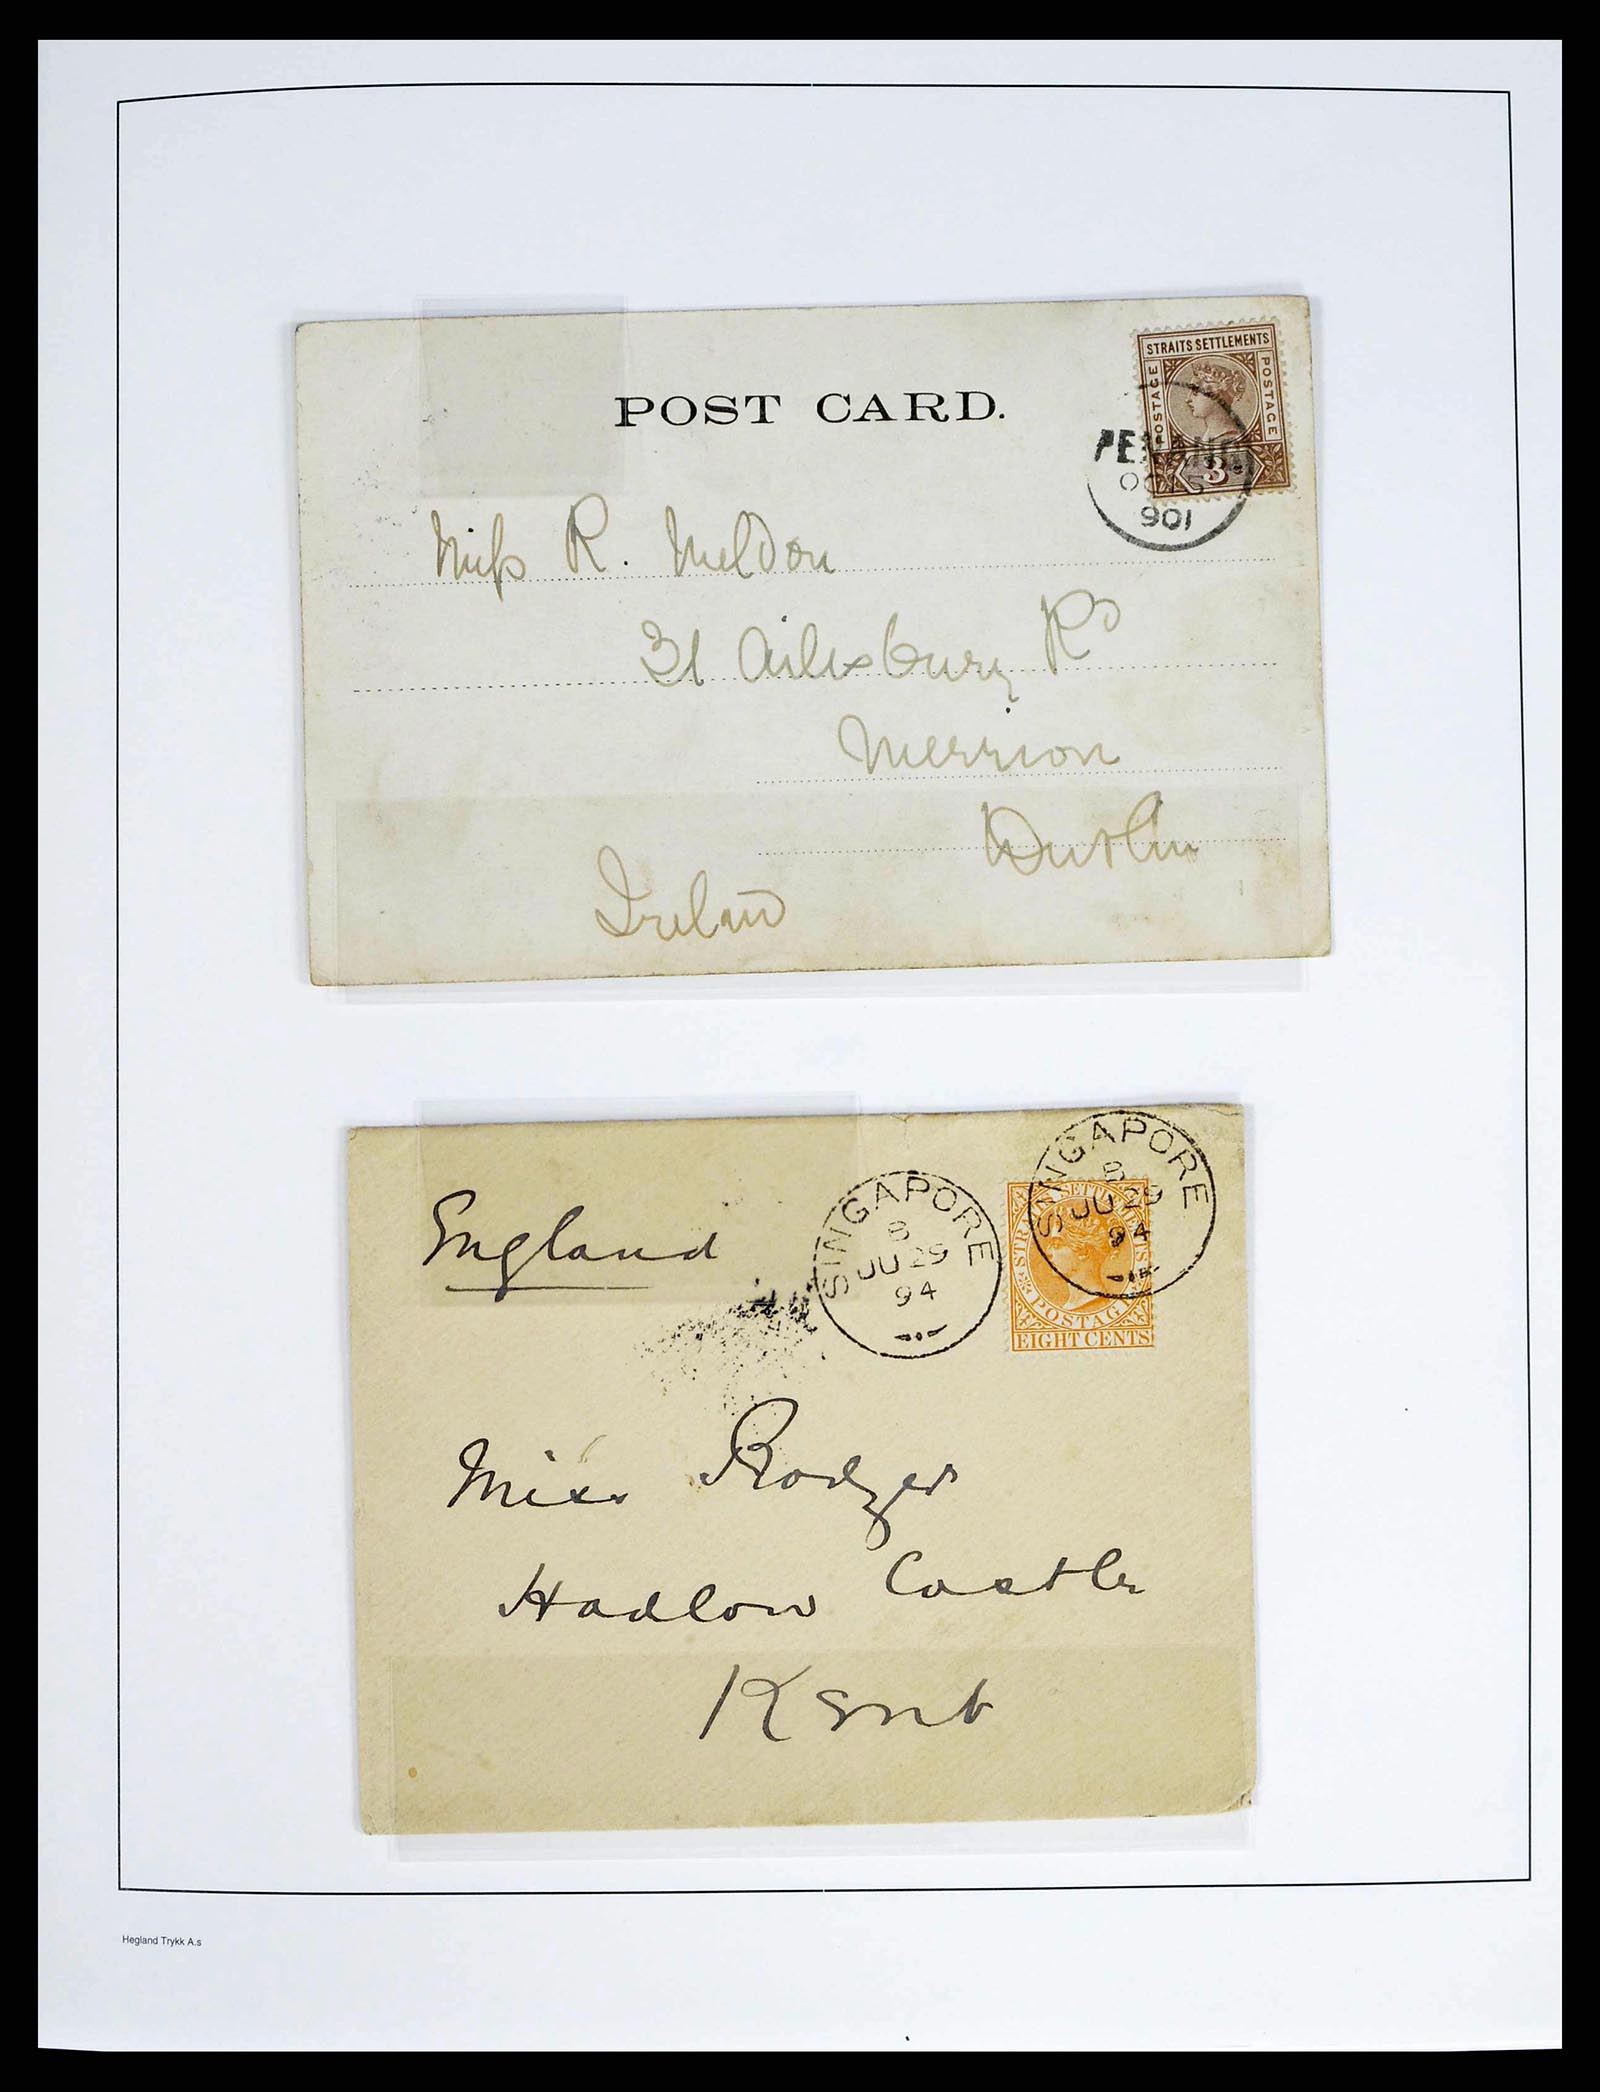 POST CARD.
STRAITS SETTLEMENTS
POSTAGE
POSTAGE
3c
PENANG
OC 15
901
Miss R. Meldon
31 Ailesbury Rd
Merrion
Dublin
Ireland
SINGAPORE
B
JU 29
94
SINGAPORE
B
JU 29
94
STRAITS SETTLEMENTS
POSTAGE
EIGHT CENTS
England
Miss Rodger
Hadlow Castle
Kent
Hegland Trykk A.s